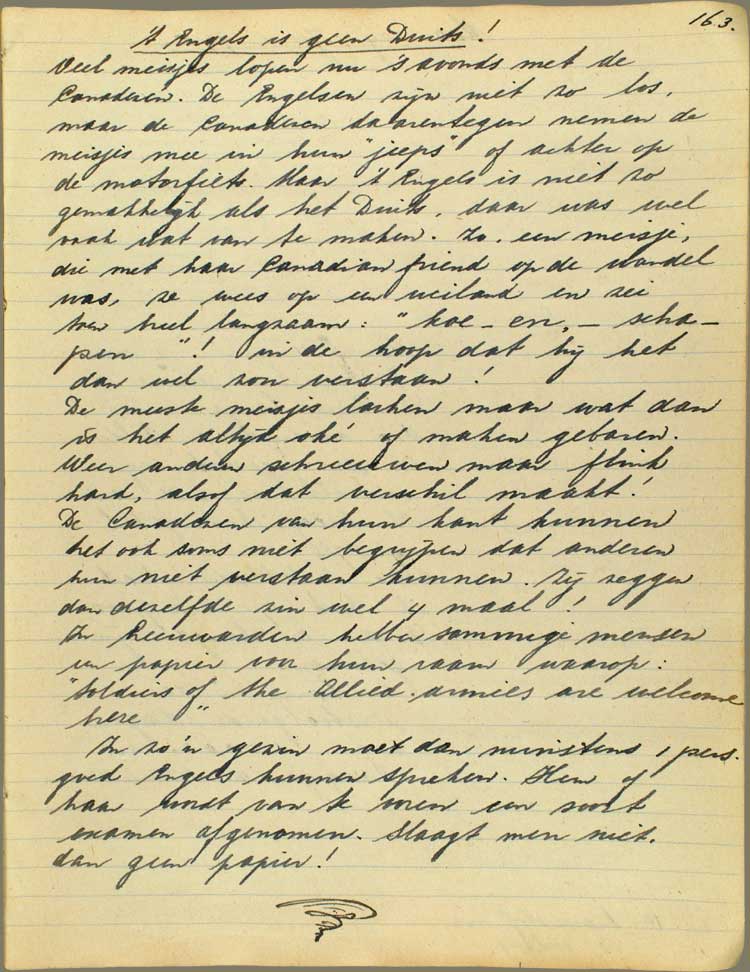 163.
't Engels is geen Duits!
Veel meisjes lopen nu 's avonds met de
Canadezen. De Engelsen zijn niet zo los,
maar de Canadezen daarentegen nemen de
meisjes mee in hun "jeeps" of achter op
de motorfiets. Maar 't Engels is niet zo
gemakkelijk als het Duits, daar was wel
vaak wat van te maken. Zo, een meisje,
die met haar Canadian friend op de wandel
was, ze wees op een weiland en zei
toen heel langzaam: "koe-en, - scha-
pen"! in de hoop dat hij het
dan wel zou verstaan!
De meeste meisjes lachen maar wat dan
is het altijd oké of maken gebaren.
Weer anderen schreeuwen maar flink
hard, alsof dat verschil maakt!
De Canadezen van hun kant kunnen
het ook soms niet begrijpen dat anderen
hun niet verstaan kunnen. Zij zeggen
dan dezelfde zin wel 4 maal!
In Leeuwarden hebben sommige mensen
een papier voor hun raam waarop:
"Soldiers of the Allied armies are welcome
here"
In zo'n gezin moet dan minstens 1 pers.
goed Engels kunnen spreken. Hem of
haar wordt van te voren een soort
examen afgenomen. Slaagt men niet,
dan geen papier!